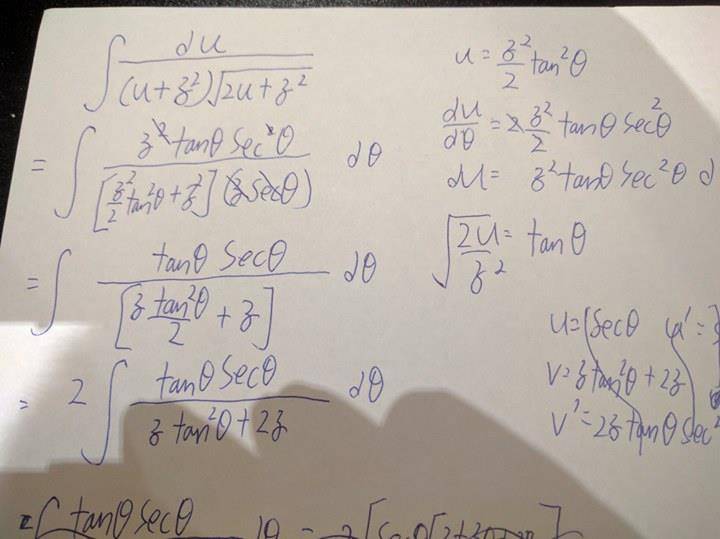 ∫ du / ((u + z²)√(2u + z²))
= ∫ z² tanθ sec²θ / ([z²/2 tan²θ + z²] (z secθ)) dθ
= ∫ tanθ secθ / [z tan²θ/2 + z] dθ
= 2 ∫ tanθ secθ / (z tan²θ + 2z) dθ
∫ tanθ secθ
dθ =
u = z²/2 tan²θ
du/dθ = 2 z²/2 tanθ sec²θ
du = z² tanθ sec²θ d
√(2u/z²) = tanθ
u = secθ u' =
v = z tan²θ + 2z
v' = 2z tanθ sec²